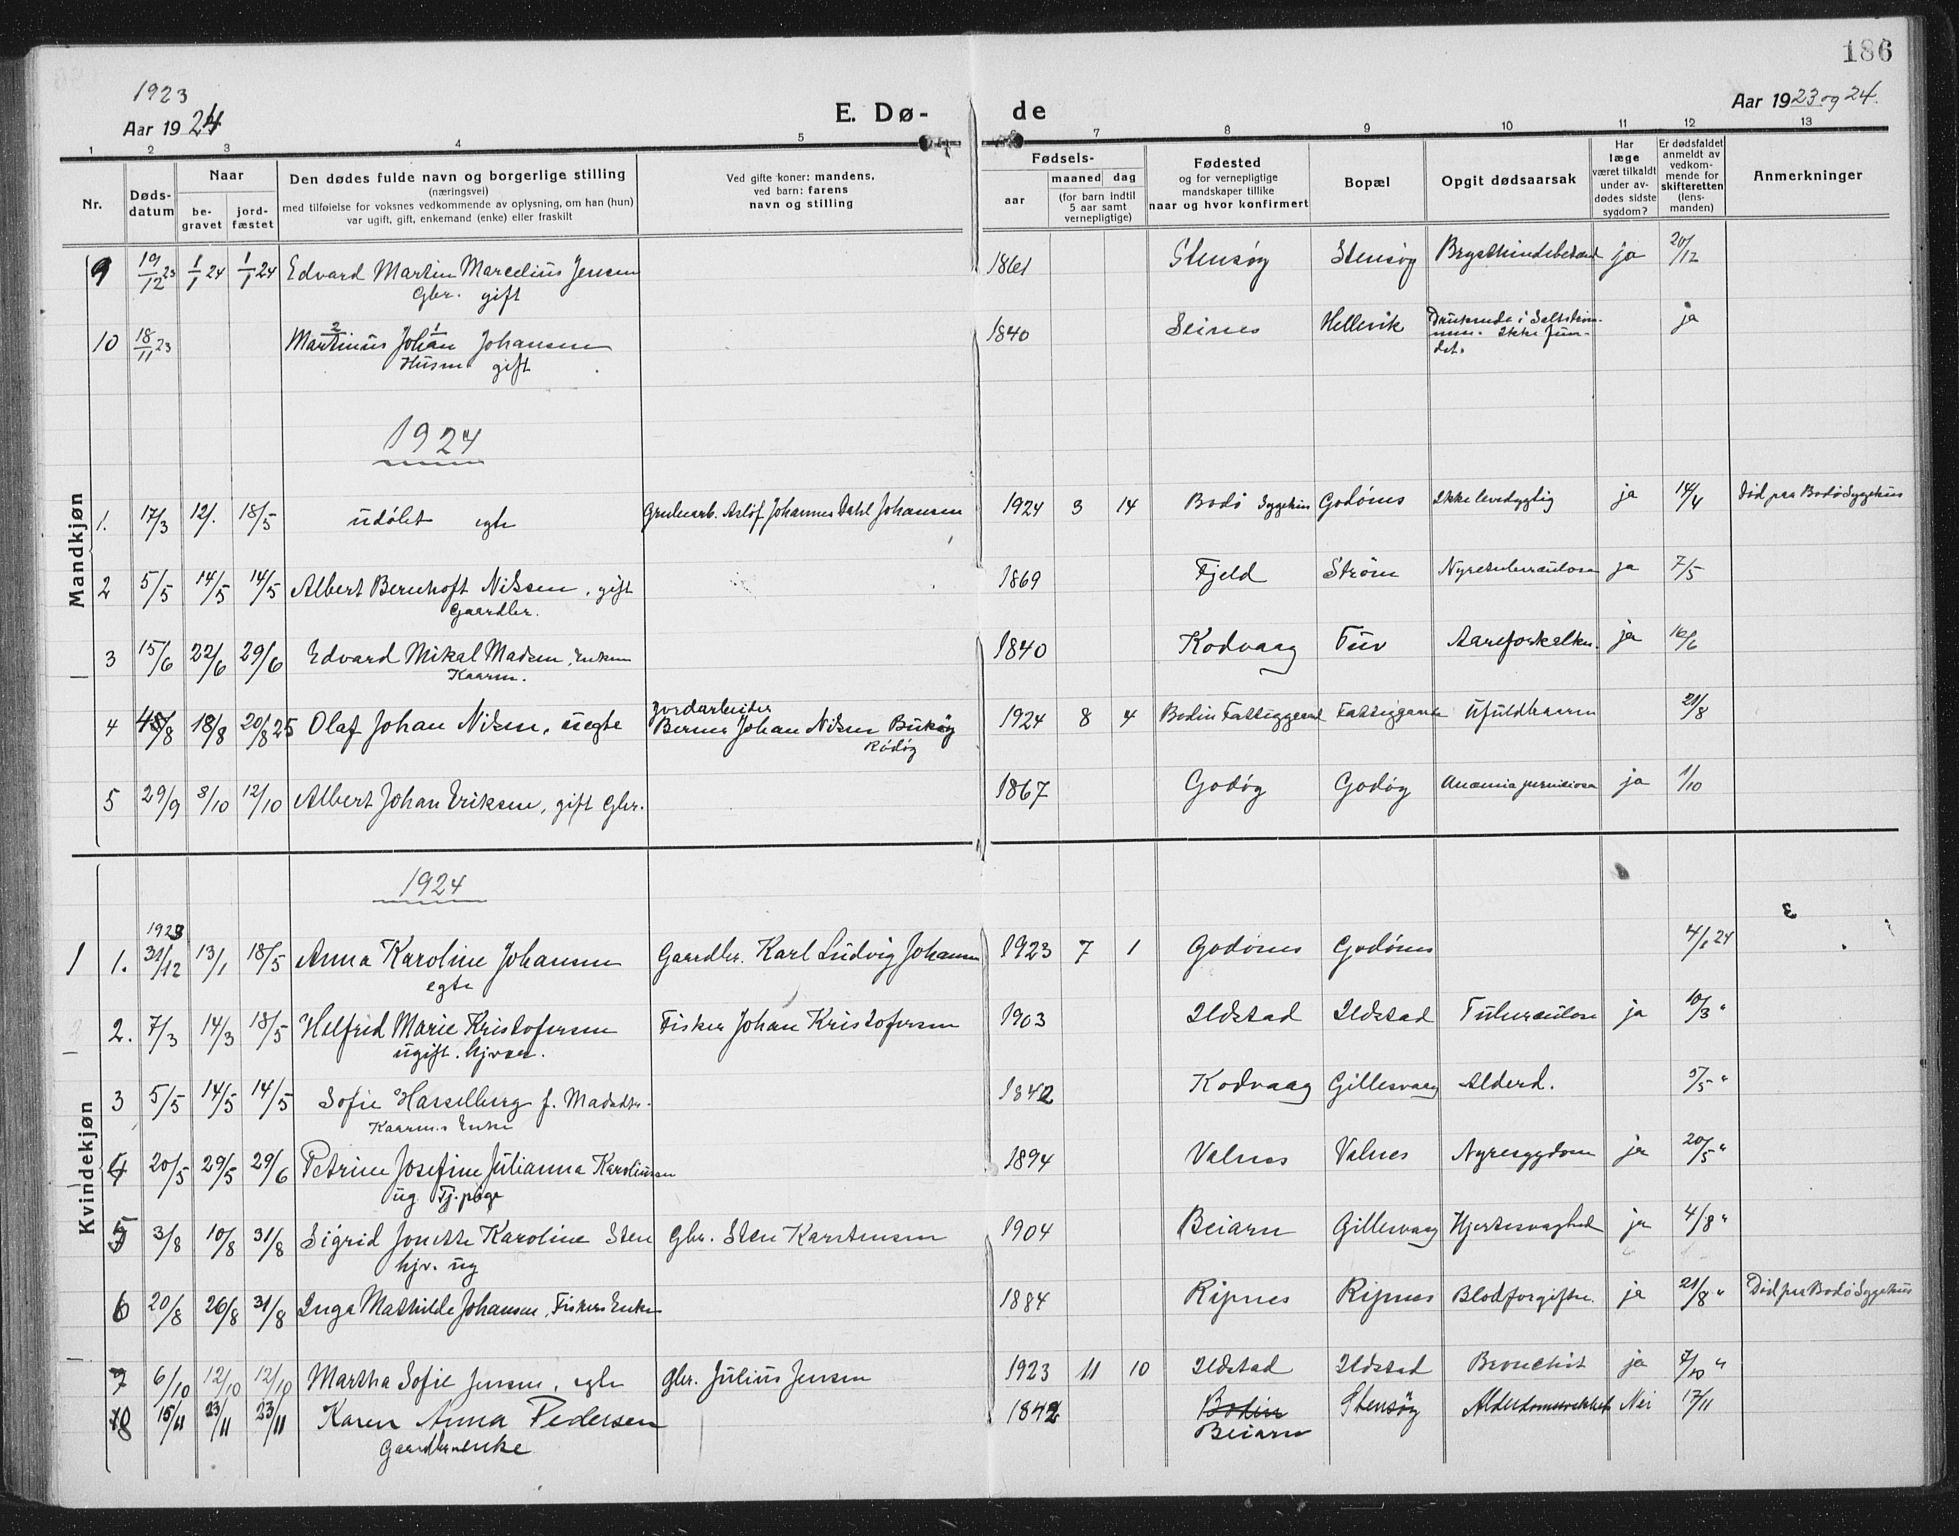 186
1923
Aar 1924
E. Dø-
de
Aar 1923 og 24.
1 2 3 4 5 6 7 8 9 10 11 12 13
Nr.
Døds-
datum
Naar
be-
gravet
jord-
fæstet
Den dødes fulde navn og borgerlige stilling
(næringsvei)
med tilføielse for voksnes vedkommende av oplysning, om han (hun)
var ugift, gift, enkemand (enke) eller fraskilt
Ved gifte koner: mandens,
ved barn: farens
navn og stilling
Fødsels-
aar
maaned dag
(for barn indtil
5 aar samt
vernepligtige)
Fødested
og for vernepligtige
mandskaper tillike
naar og hvor konfirmert
Bopæl
Opgit dødsaarsak
Har
læge
været tilkaldt
under av-
dødes sidste
sygdom?
Er dødsfaldet
anmeldt av
vedkom-
mende for
skifteretten
(lens-
manden)
Anmerkninger
Mandkjøn
9 19/12 23 1/1 24 1/1 24 Edvard Martin Marcelius Jensen 1861 Stensøy Stensøy ja 20/12
Gbr. gift
10 18/11 23 Martinus Johan Johansen 1840 Seines Hellevik Druknede i Saltstrøm-
2 1
men. Ikke fun-
det. ja
Husm. gift
1924
1. 17/3 12/. 18/5 udøbt egte Grubearb. Johannes Dahl Johansen 1924 3 14 Bodø Sygehus Godønes Ikke levedygtig ja 14/4 Død paa Bodø Sygehus
2 5/5 14/5 14/5 Albert Bernhoft Nilsen, gift 1869 Fjeld Strøm Nyretuberculose ja 7/5
Gaardbr.
3 15/6 22/6 29/6 Edvard Mikal Madsen, Enkem 1840 Kodvaag Tuv Aareforkalkn. ja 16/6
Kaarm.
Jordarbeider
4 18/8 20/8 25 Olaf Johan Nilsen, uegte Berner Johan Nilsen Bukøy 1924 8 4 Bodin Fattiggaard Fattiggaarden Ufuldbaaren 21/8
Rødøy
5 29/9 8/10 12/10 Albert Johan Eriksen, gift Gbr. 1867 Godøy Godøy Anæmia perniciosa ja 1/10
Kvindekjøn
1924
1923
1 1. 31/12 13/1 18/5 Anna Karoline Johansen Gaardbr. Karl Ludvig Johansen 1923 7 1 Godønes Godønes 4/1 24
egte
2. 7/3 14/3 18/5 Helfrid Marie Kristofersen Fisker Johan Kristofersen 1903 Ildstad Ildstad Tuberculose ja 10/3 "
ugift. hjvær.
3 5/5 14/5 14/5 Sofie Hasselberg f. Madsdtr. 1842 Kodvaag Gillesvaag Alderd. 5/5 "
Kaarm.s Enke
4 20/5 29/5 29/6 Petrine Josefine Julianna Karoliussen 1894 Valnes Valnes Nyresygdom ja 20/5 "
ug Tj.pige
5 3/8 10/8 31/8 Sigrid Jonette Karoline Sten Gbr. Sten Karstensen 1904 Beiarn Gillesvaag Hjertesvaghed ja 4/8 "
hjv. ug
6 20/8 26/8 31/8 Inga Mathilde Johansen, Fiskers Enke 1884 Ripnes Ripnes Blodforgiftn. ja 21/8 " Død paa Bodø Sygehus
7 6/10 12/10 12/10 Martha Sofie Jensen, egte Gbr. Julius Jensen 1923 11 10 Ildstad Ildstad Bronchit ja 7/10 "
8 15/11 23/11 23/11 Karen Anna Pedersen 1842 Bodin Stensøy Alderdomssvakhet Nei 17/11
Gaardbr.enke Beiarn